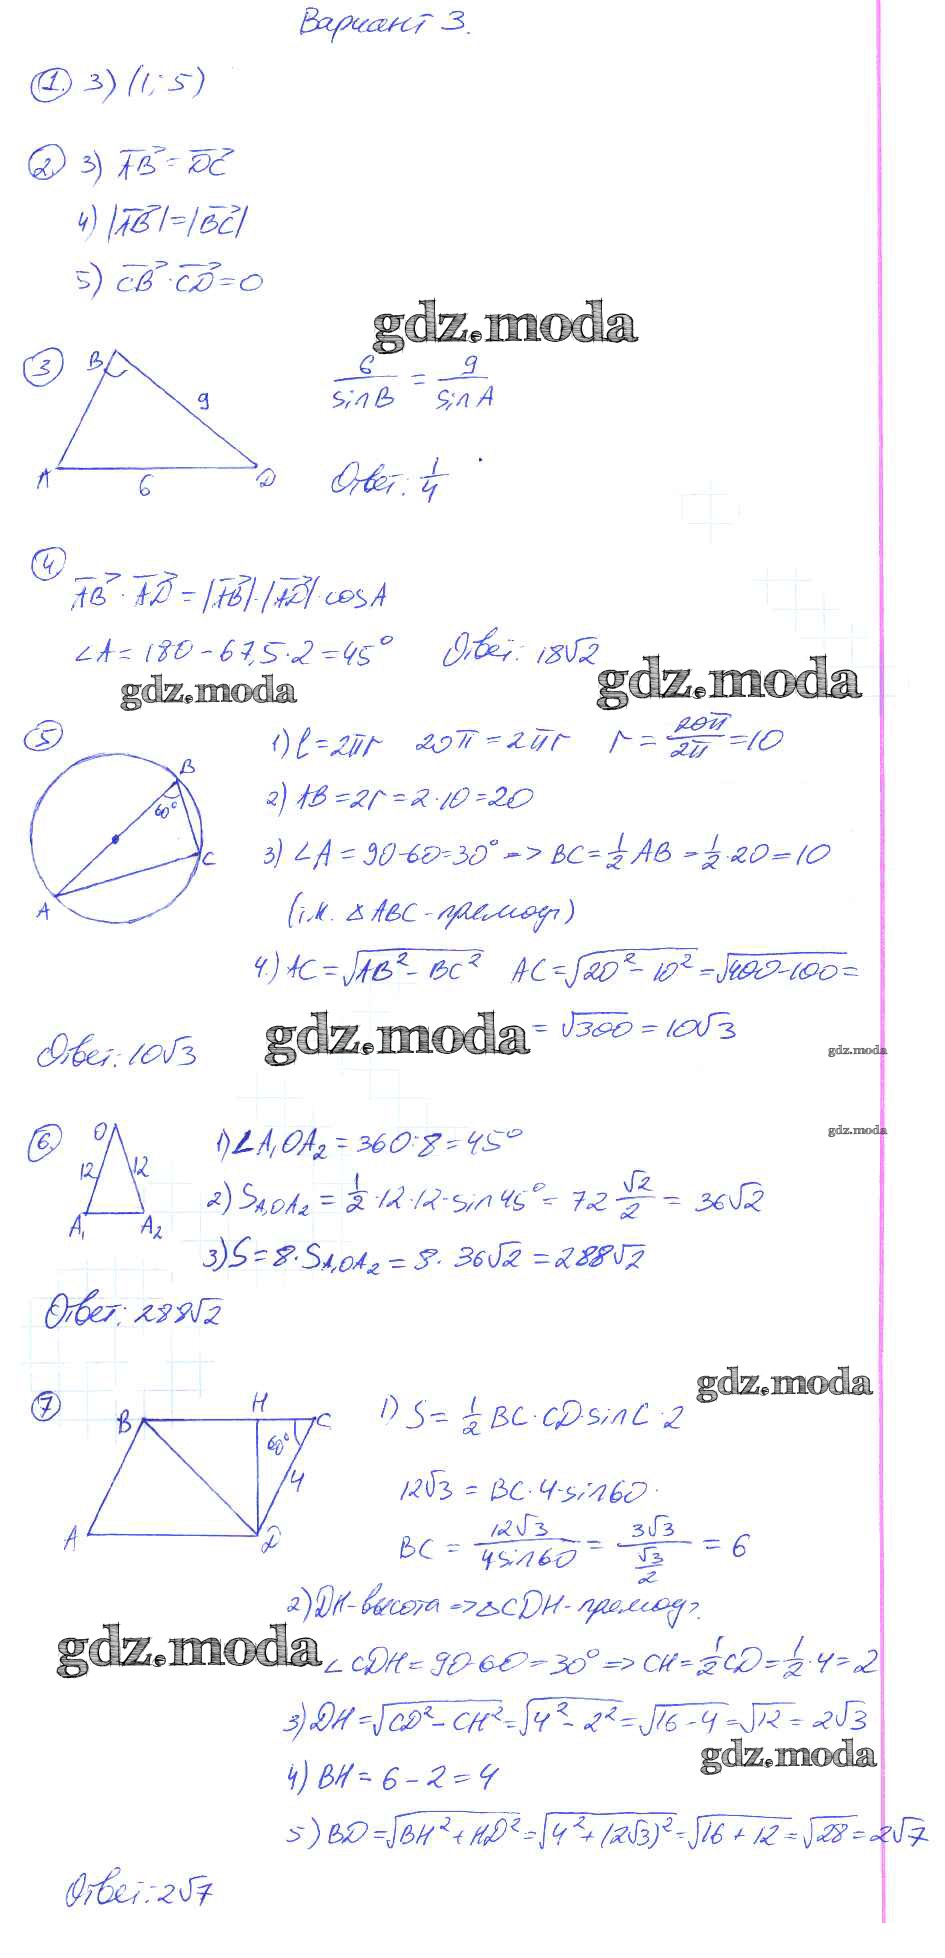 Вариант 3.
1. 3) (1; 5)
2. 3) AB = DC
4) |AB| = |BC|
5) CB · CD = 0
gdz.moda
3 B 9 A 6 D
6/sinB = 9/sinA
Ответ: 1/4
4
AB · AD = |AB| · |AD| · cosA
∠A = 180 - 67,5 · 2 = 45° Ответ: 18√2
gdz.moda gdz.moda
5 1) l = 2πr 20π = 2πr r = 20π/2π = 10
B 60° C A
2) AB = 2r = 2 · 10 = 20
3) ∠A = 90 - 60 = 30° => BC = 1/2 AB = 1/2 · 20 = 10
(т.к. △ABC - прямоуг)
4.) AC = √(AB² - BC²) AC = √(20² - 10²) = √(400 - 100) =
= √300 = 10√3
gdz.moda
gdz.moda
Ответ: 10√3
gdz.moda
6. O 12 12 A₁ A₂
1) ∠A₁OA₂ = 360 : 8 = 45°
2) S A₁OA₂ = 1/2 · 12 · 12 · sin45° = 72 √2/2 = 36√2
3) S = 8 · S A₁OA₂ = 8 · 36√2 = 288√2
Ответ: 288√2
gdz.moda
7 B H C 60° 4 A D
1) S = 1/2 BC · CD · sinC · 2
12√3 = BC · 4 · sin60.
BC = 12√3/4sin60 = 3√3/(√3/2) = 6
2) DH - высота => △CDH - прямоуг.
gdz.moda
∠CDH = 90 - 60 = 30° => CH = 1/2 CD = 1/2 · 4 = 2
3) DH = √(CD² - CH²) = √(4² - 2²) = √(16 - 4) = √12 = 2√3
gdz.moda
4) BH = 6 - 2 = 4
5) BD = √(BH² + HD²) = √(4² + (2√3)²) = √(16 + 12) = √28 = 2√7
Ответ: 2√7